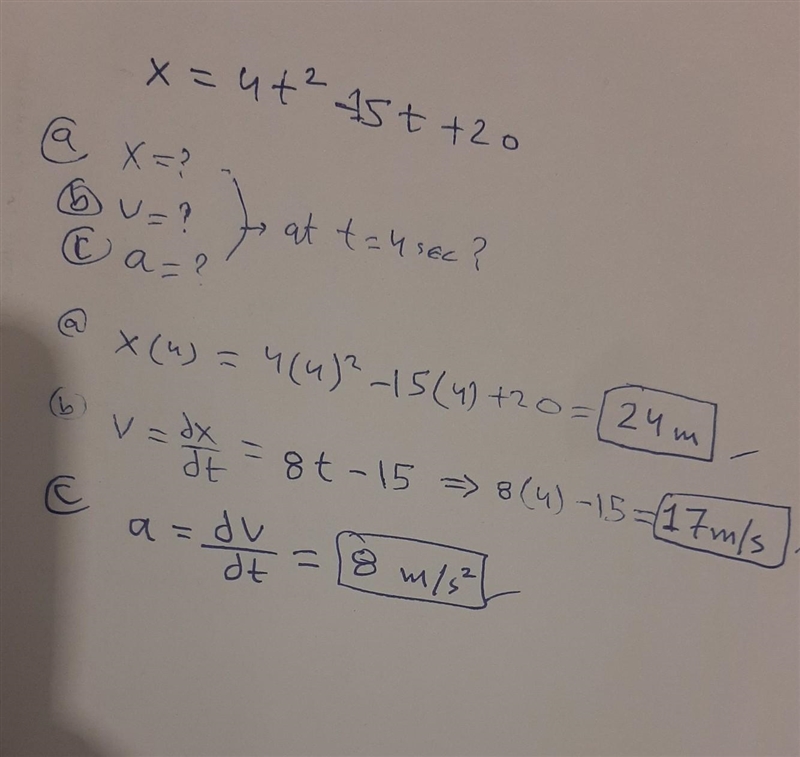 x = 4t² -15t +20
(a) x = ?
(b) v = ? } → at t = 4 sec ?
(c) a = ?
(a) x(4) = 4(4)² -15(4) +20 = 24 m
(b) v = dx/dt = 8t - 15 ⇒ 8(4) - 15 = 17 m/s
(c) a = dv/dt = 8 m/s²